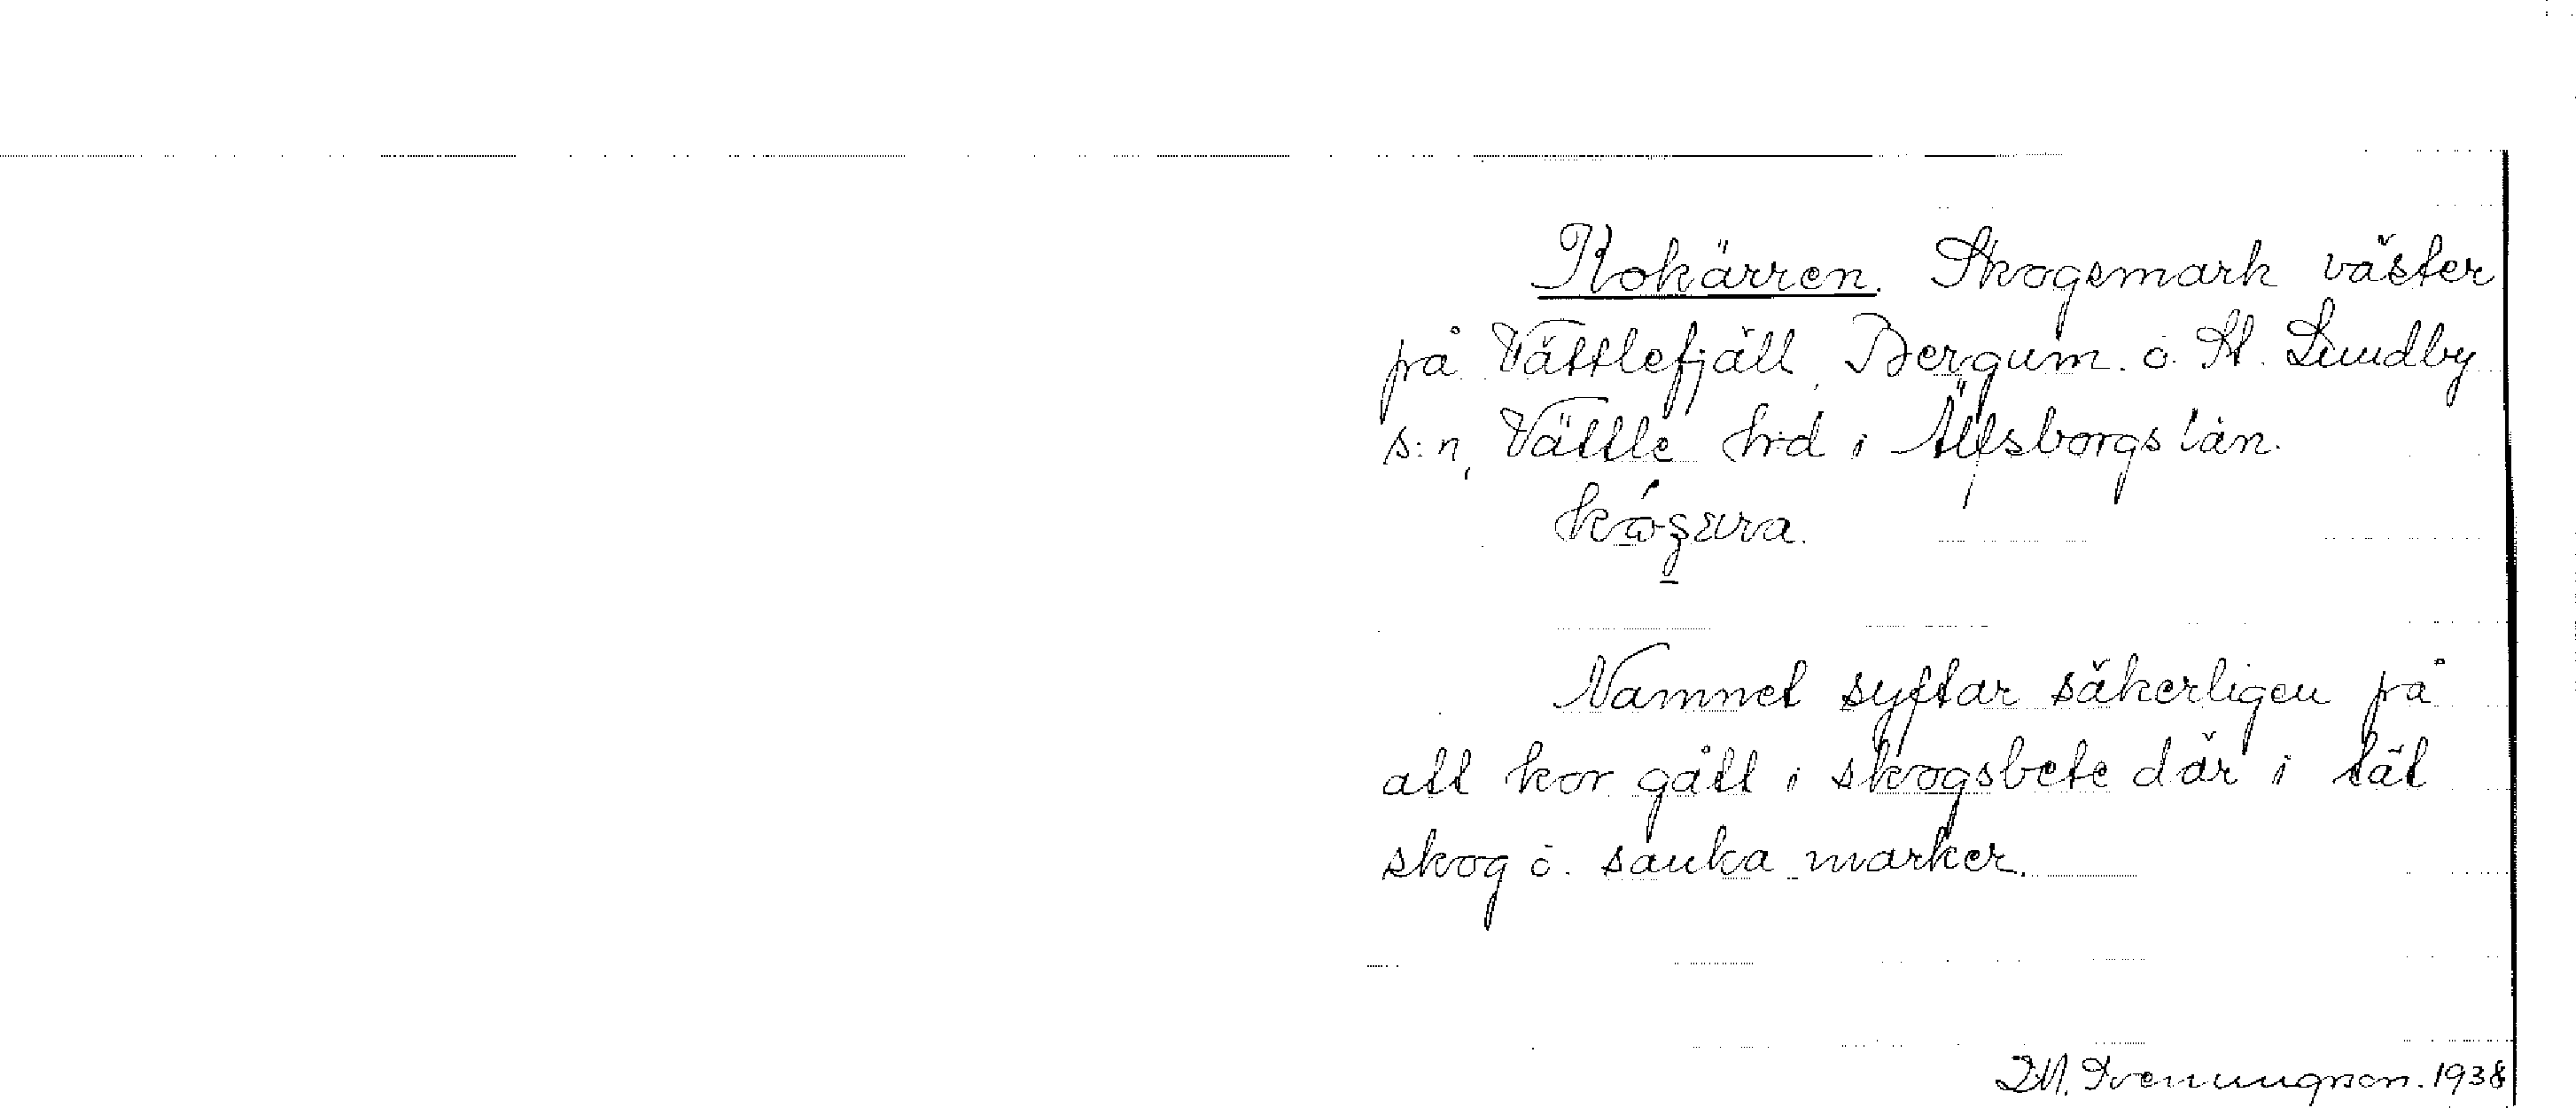 Kokärren. Skogsmark väster
på Vättlefjäll, Bergum o. St. Lundby
s:n, Vättle hrd i Älfsborgs län.
Namnet syftar säkerligen på
att kor gått i skogsbete där i tät
skog o. sanka marker.
Svenungson. 1938